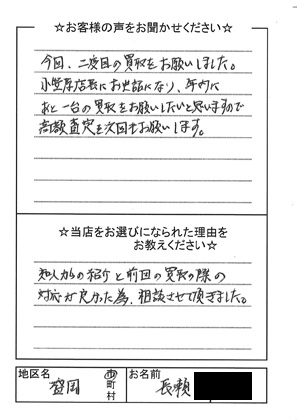 ☆お客様の声をお聞かせください☆
今回、二度目の買取をお願いしました。
小笠原店長にお世話になり、年内に
あと一台の買取をお願いしたいと思いますので
高額査定を次回もお願いします。
☆当店をお選びになられた理由を
お教えください☆
知人からの紹介と前回の買取の際の
対応が良かった為、相談させて頂きました。
地区名
盛岡
市
町
村
お名前
長瀬